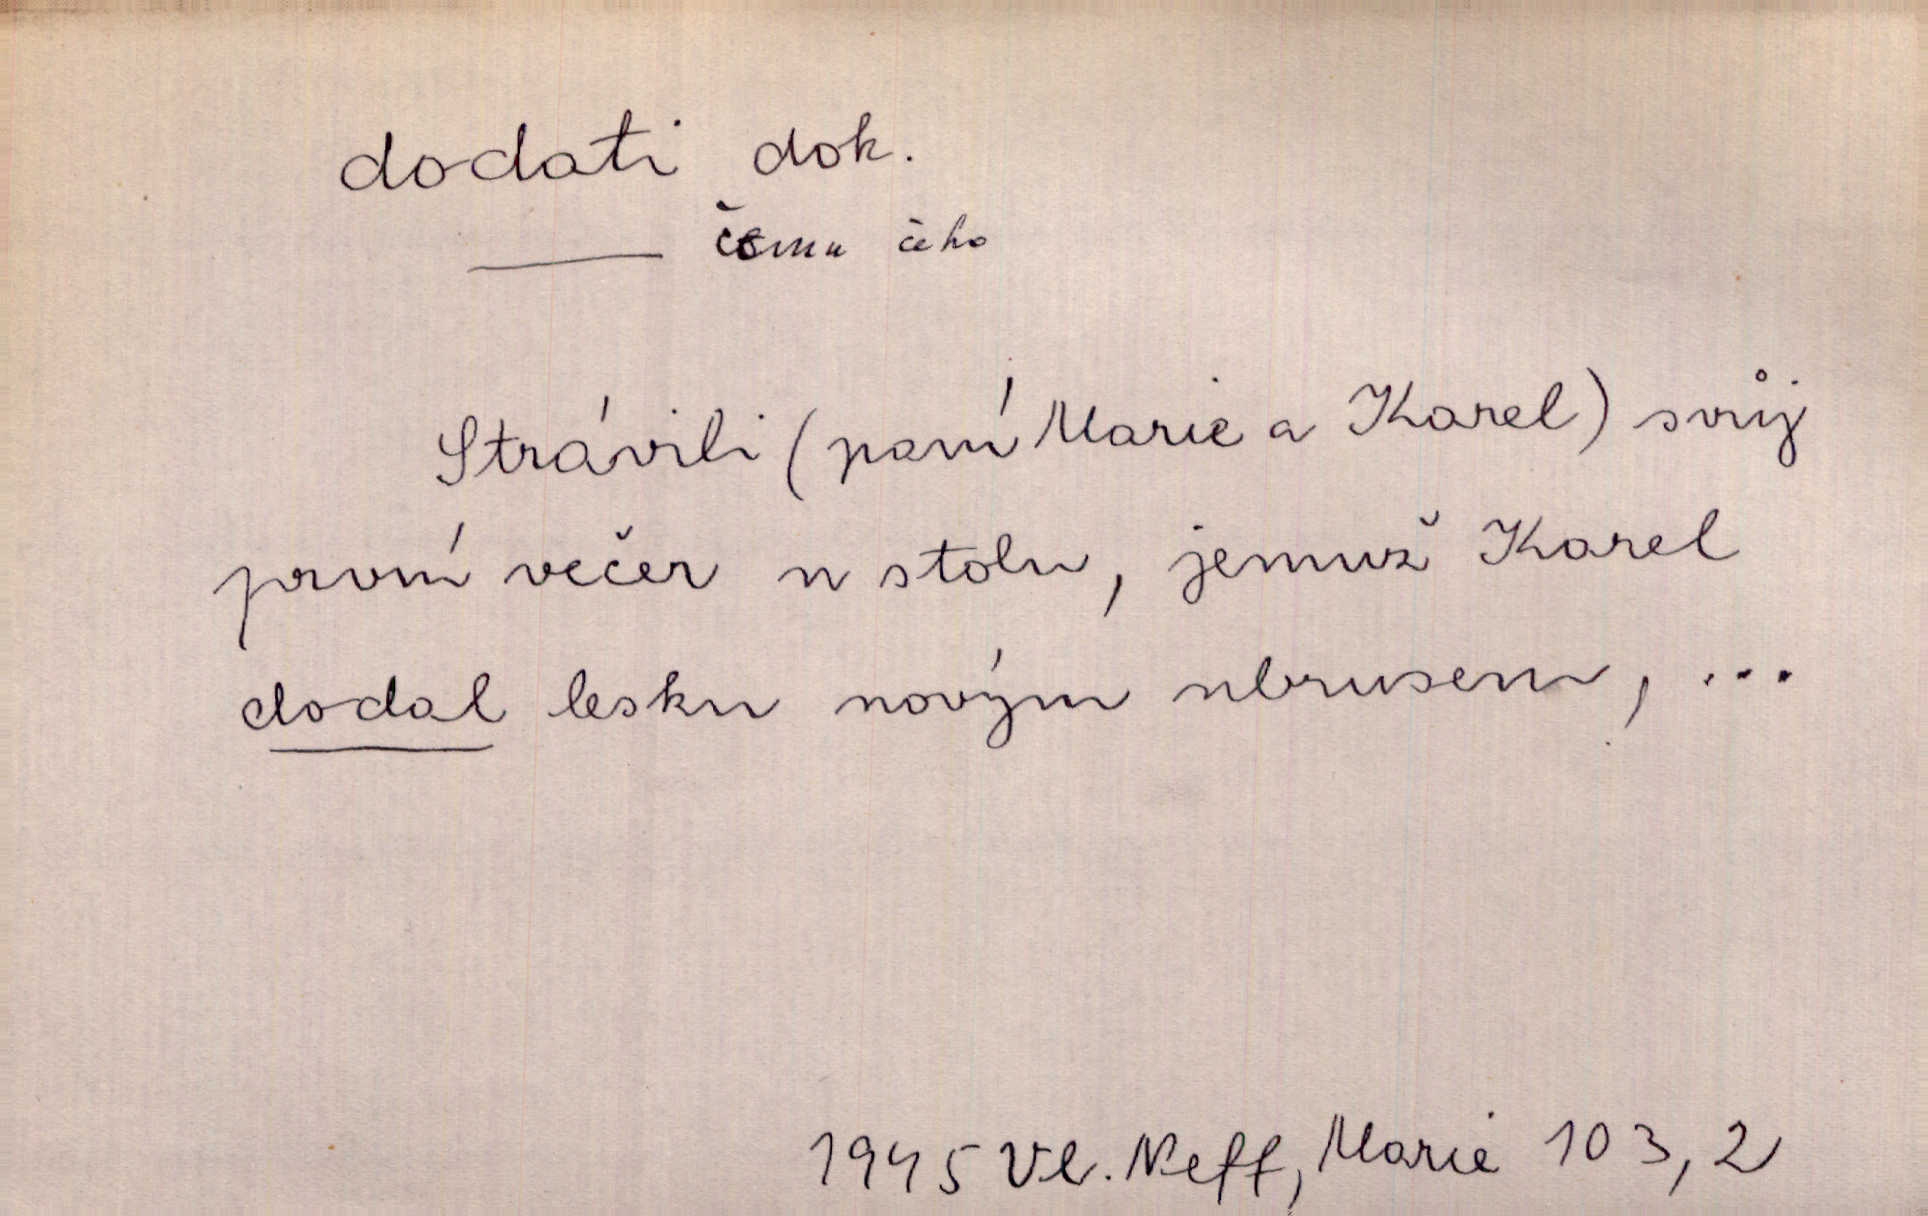 dodati dok.
——— čemu čeho
Strávili (paní Marie a Karel) svůj
první večer u stolu, jemuž Karel
dodal lesku novým ubrusem, ...
1945 Vl. Neff, Marie 103, 2